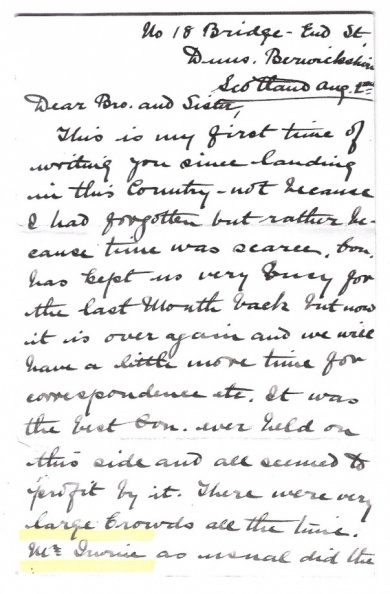 No 18 Bridge-End St,
Duns. Berwickshire
Scotland Aug. 2nd
Dear Bro. and Sister,
This is my first time of
writing you since landing
in this Country - not because
I had forgotten but rather be-
cause time was scarce. Con.
has kept us very busy for
the last Month back but now
it is over again and we will
have a little more time for
correspondence etc. It was
the best Con. ever held on
this side and all seemed to
profit by it. There were very
large Crowds all the time.
Mr. Irvine as usual did the